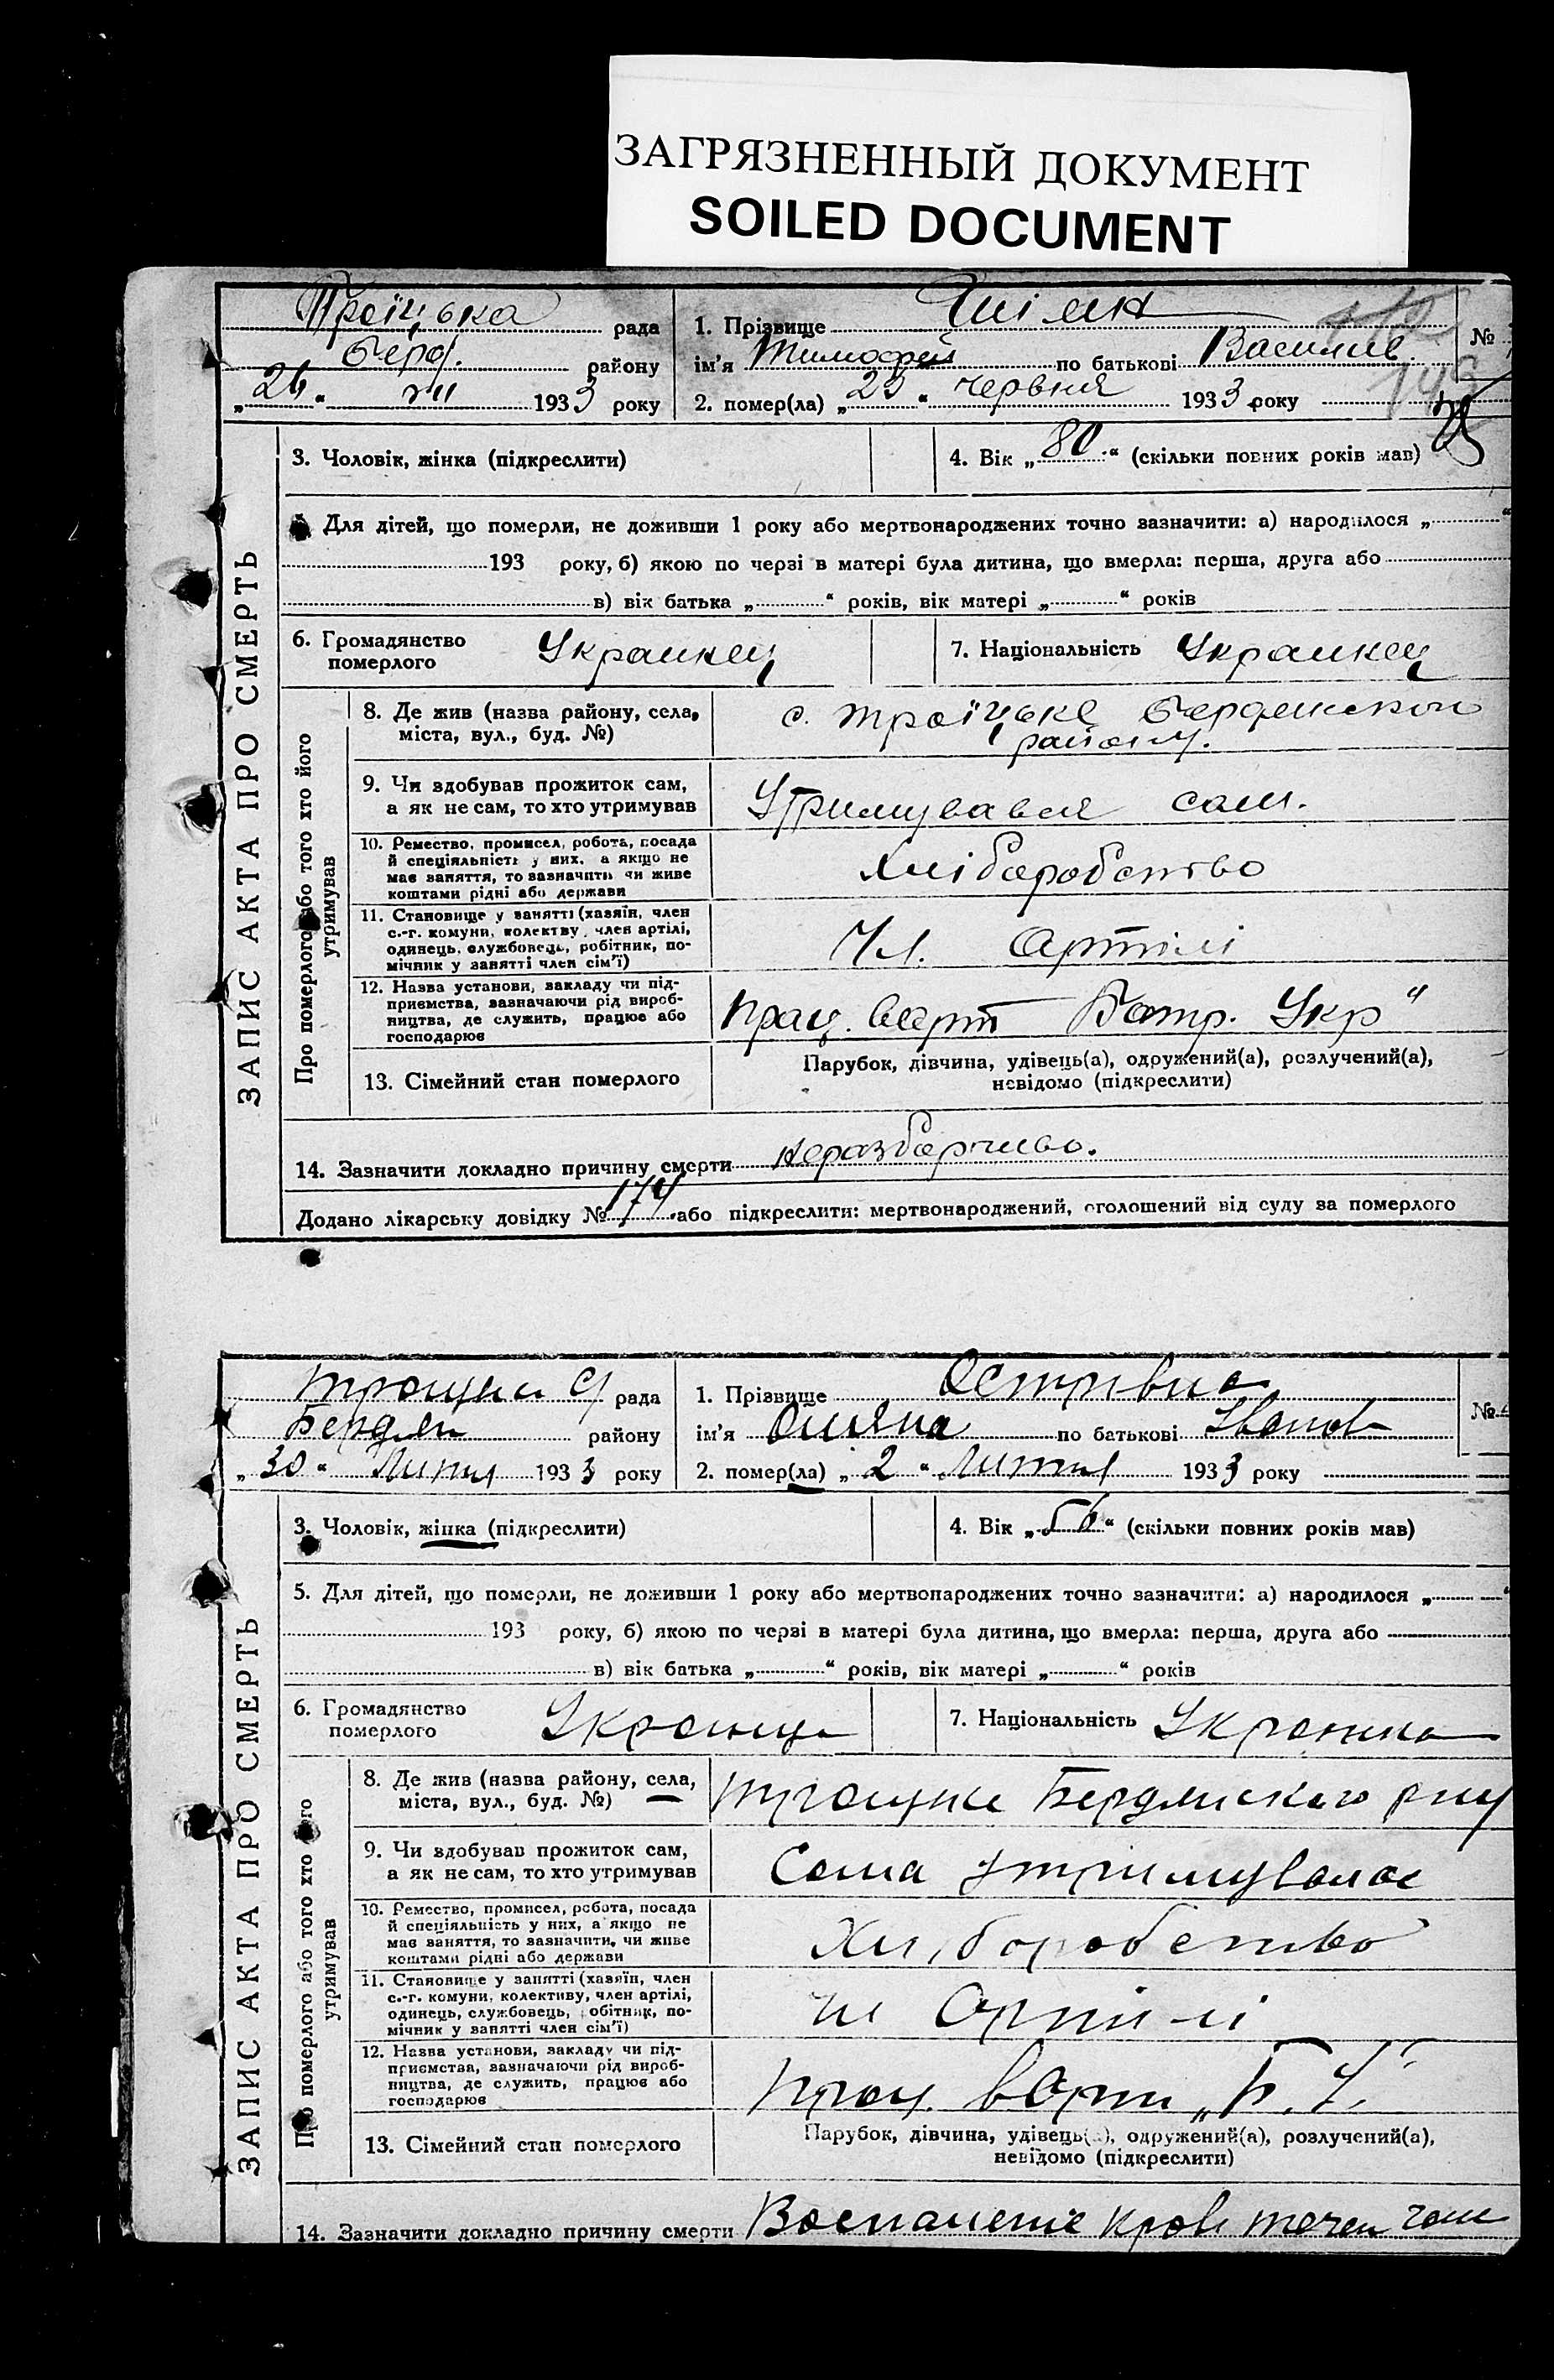 ЗАГРЯЗНЕННЫЙ ДОКУМЕНТ
SOILED DOCUMENT
Троїцька рада
Берд. району
„26“ VII 1933 року
1. Прізвище
№
ім'я Тимофей по батькові Василів.
2. помер(ла) „25“ червня 1933 року
ЗАПИС АКТА ПРО СМЕРТЬ
3. Чоловік, жінка (підкреслити)
4. Вік „80“ (скільки повних років мав)
Для дітей, що померли, не доживши 1 року або мертвонароджених точно зазначити: а) народилося „ “
193 року, б) якою по черзі в матері була дитина, що вмерла: перша, друга або
в) вік батька „ “ років, вік матері „ “ років
6. Громадянство
померлого
Украинец
7. Національність Украинец
Про померлого або того хто його
утримував
8. Де жив (назва району, села,
міста, вул., буд. №)
с. Троїцьке Бердянском
району.
9. Чи здобував прожиток сам,
а як не сам, то хто утримував
Утримувався сам.
10. Ремество, промисел, робота, посада
й спеціяльність у них, а якщо не
має заняття, то зазначить чи живе
коштами рідні або держави
Хліборобство
11. Становище у занятті (хазяїн, член
с.-г. комуни, колективу, член артілі,
одинець, службовець, робітник, по-
мічник у занятті член сім'ї)
Чл. Артілі
12. Назва установи, закладу чи під-
приємства, зазначаючи рід вироб-
ництва, де служить, працює або
господарює
Прац. в арт Батр. Укр“
13. Сімейний стан померлого
Парубок, дівчина, удівець(а), одружений(а), розлучений(а),
невідомо (підкреслити)
14. Зазначити докладно причину смерти неразборчиво.
Додано лікарську довідку № 174 або підкреслити: мертвонароджений, оголошений від суду за померлого
рада
Бердян району
„30“ Липня 1933 року
1. Прізвище Острівна
№
ім'я по батькові Иванов
2. помер(ла) „2“ Липня 1933 року
ЗАПИС АКТА ПРО СМЕРТЬ
3. Чоловік, жінка (підкреслити)
4. Вік „56“ (скільки повних років мав)
5. Для дітей, що померли, не доживши 1 року або мертвонароджених точно зазначити: а) народилося „ “
193 року, б) якою по черзі в матері була дитина, що вмерла: перша, друга або
в) вік батька „ “ років, вік матері „ “ років
6. Громадянство
померлого
7. Національність Украинка
Про померлого або того хто його
утримував
8. Де жив (назва району, села,
міста, вул., буд. №)
Троицке Бердянского р-ну
9. Чи здобував прожиток сам,
а як не сам, то хто утримував
Сама утримувалас
10. Ремество, промисел, робота, посада
й спеціяльність у них, а якщо не
має заняття, то зазначити, чи живе
коштами рідні або держави
Хліборобство
11. Становище у занятті (хазяїн, член
с.-г. комуни, колективу, член артілі,
одинець, службовець, робітник, по-
мічник у занятті член сім'ї)
чл Артілі
12. Назва установи, закладу чи під-
приємства, зазначаючи рід вироб-
ництва, де служить, працює або
господарює
прац. в Арт „Б. У.“
13. Сімейний стан померлого
Парубок, дівчина, удівець(а), одружений(а), розлучений(а),
невідомо (підкреслити)
14. Зазначити докладно причину смерти Воспаление крове